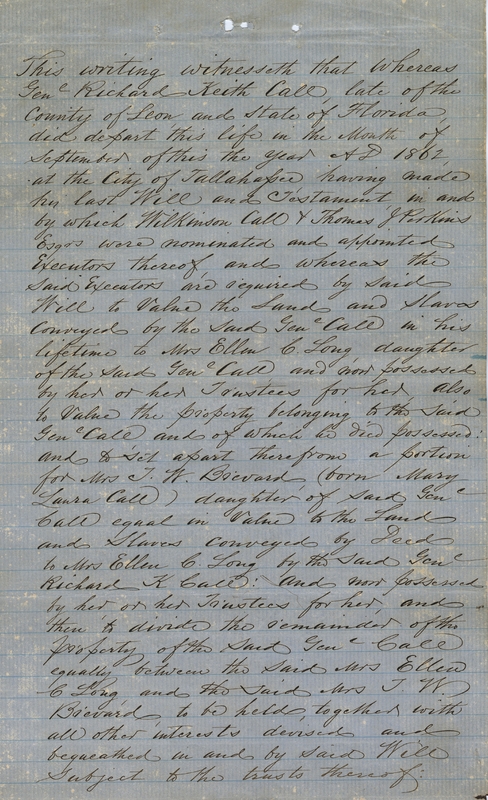 This writing witnesseth that Whereas
Genl Richard Keith Call, late of the
County of Leon and State of Florida,
did depart this life in the Month of
September of this the year AD 1862,
at the City of Tallahassee having made
his last Will and Testament in and
by which Wilkinson Call & Thomas J Perkins
Esqrs were nominated and appointed
Executors thereof and whereas the
Said Executors are required by said
Will to Value the Land and Slaves
Conveyed by the Said Genl Call in his
lifetime to Mrs Ellen C. Long daughter
of the Said Genl Call and now possessed
by her or her Trustees for her, also
to Value the property belonging to the Said
Genl Call and of which he died possessed:
and to set apart therefrom a portion
for Mrs T. W. Brevard (born Mary
Laura Call) daughter of Said Genl
Call equal in Value to the Land
and Slaves conveyed by Deed
to Mrs Ellen C. Long by the Said Genl
Richard K Call: and now possessed
by her or her Trustees for her, and
then to divide the remainder of the
property of the Said Genl Call
equally between the Said Mrs Ellen
C Long and the Said Mrs T. W.
Brevard, to be held, together with
all other interests devised and
bequeathed in and by said Will
Subject to the trusts thereof;